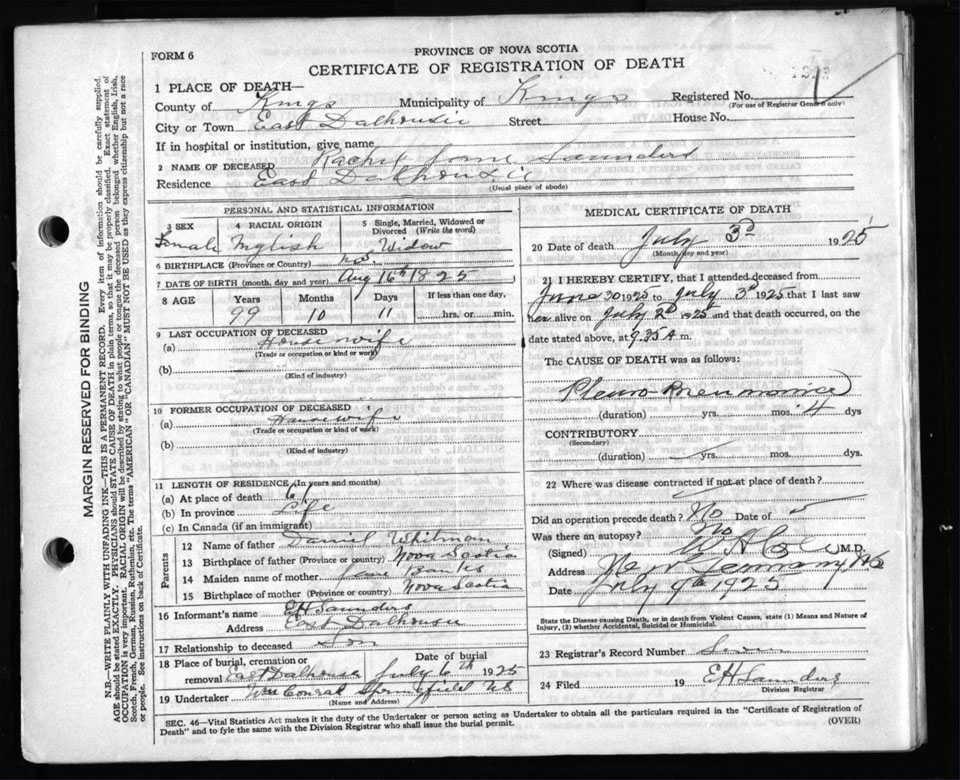 FORM 6
PROVINCE OF NOVA SCOTIA
CERTIFICATE OF REGISTRATION OF DEATH
1 PLACE OF DEATH—
County of Kings Municipality of Kings Registered No.
(For use of Registrar General only)
City or Town East Dalhousie Street House No.
If in hospital or institution, give name
2 NAME OF DECEASED Rachel Jane Saunders
Residence East Dalhousie
(Usual place of abode)
PERSONAL AND STATISTICAL INFORMATION
3 SEX 4 RACIAL ORIGIN 5 Single, Married, Widowed or Divorced (Write the word)
Female English Widow
6 BIRTHPLACE (Province or Country) N.S.
7 DATE OF BIRTH (month, day and year) Aug 16th 1825
8 AGE Years Months Days If less than one day,
99 10 11 hrs. or min.
9 LAST OCCUPATION OF DECEASED
(a) Housewife
(Trade or occupation or kind of work)
(b)
(Kind of industry)
10 FORMER OCCUPATION OF DECEASED
(a) Housewife
(Trade or occupation or kind of work)
(b)
(Kind of industry)
11 LENGTH OF RESIDENCE (In years and months)
(a) At place of death
(b) In province Life
(c) In Canada (if an immigrant)
Parents
12 Name of father Daniel Whitman
13 Birthplace of father (Province or country) Nova Scotia
14 Maiden name of mother Banks
15 Birthplace of mother (Province or country) Nova Scotia
16 Informant's name E H Saunders
Address East Dalhousie
17 Relationship to deceased Son
18 Place of burial, cremation or removal East Dalhousie Date of burial July 6th 1925
19 Undertaker Wm Conrad Springfield NS
(Name and Address)
MEDICAL CERTIFICATE OF DEATH
20 Date of death July 3d 1925
(Month, day and year)
21 I HEREBY CERTIFY, that I attended deceased from
June 30 1925 to July 3d 1925 that I last saw
her alive on July 2d 1925 and that death occurred, on the
date stated above, at 9.35 A m.
The CAUSE OF DEATH was as follows:
Pleuro-Pneumonia
(duration) yrs. mos. 4 dys
CONTRIBUTORY
(Secondary)
(duration) yrs. mos. dys.
22 Where was disease contracted if not at place of death?
Did an operation precede death? No Date of
Was there an autopsy? No
(Signed) M.D.
Address New Germany NS
Date July 9th 1925
State the Disease causing Death, or in death from Violent Causes, state (1) Means and Nature of Injury, (2) whether Accidental, Suicidal or Homicidal.
23 Registrar's Record Number Seven
24 Filed 19 E H Saunders
Division Registrar
SEC. 46—Vital Statistics Act makes it the duty of the Undertaker or person acting as Undertaker to obtain all the particulars required in the "Certificate of Registration of
Death" and to fyle the same with the Division Registrar who shall issue the burial permit.
(OVER)
MARGIN RESERVED FOR BINDING
N.B.—WRITE PLAINLY WITH UNFADING INK—THIS IS A PERMANENT RECORD. Every item of information should be carefully supplied.
AGE should be stated EXACTLY. PHYSICIANS should STATE CAUSE OF DEATH in plain terms, so that it may be properly classified. Exact statement of
OCCUPATION is very important. RACIAL ORIGIN will be described by stating to what people or tongue the deceased person belonged whether English, Irish,
Scotch, French, German, Russian, Ruthenian, etc. The terms "AMERICAN" OR "CANADIAN" MUST NOT BE USED as they express citizenship but not a race
or people. See instructions on back of Certificate.